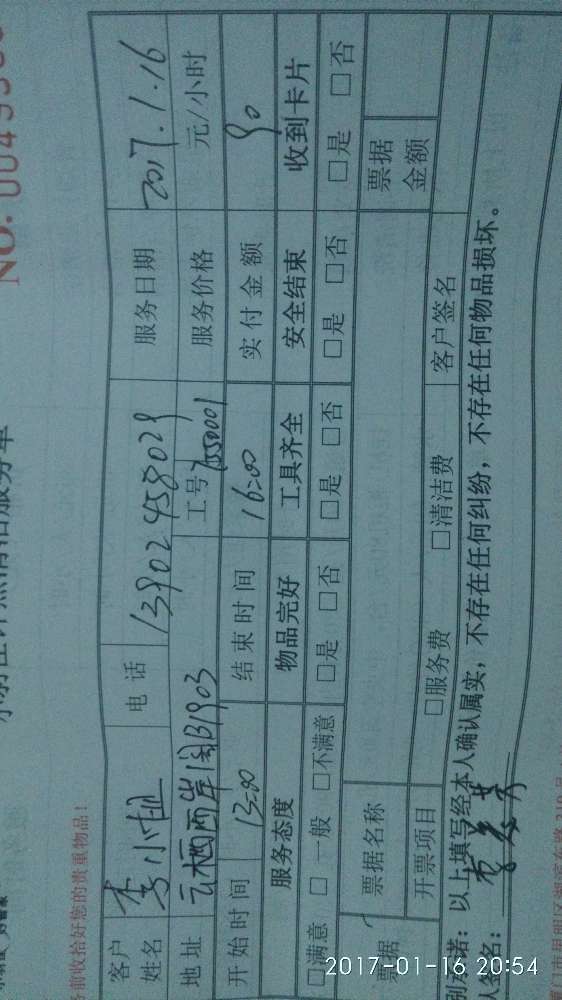 NO: 00495
前收拾好您的贵重物品！
客户姓名 李小姐 电话 13902458029 服务日期 2017.1.16
地址 云栖西岸阁B1903 工号 7550001 服务价格 元/小时
开始时间 13:00 结束时间 16:00 实付金额 90
服务态度 物品完好 工具齐全 安全结束 收到卡片
□满意 □一般 □不满意 □是 □否 □是 □否 □是 □否 □是 □否
票据 票据名称 票据金额
开票项目 □服务费 □清洁费 客户签名
诺：以上填写经本人确认属实，不存在任何纠纷，不存在任何物品损坏。
签名：
2017-01-16 20:54